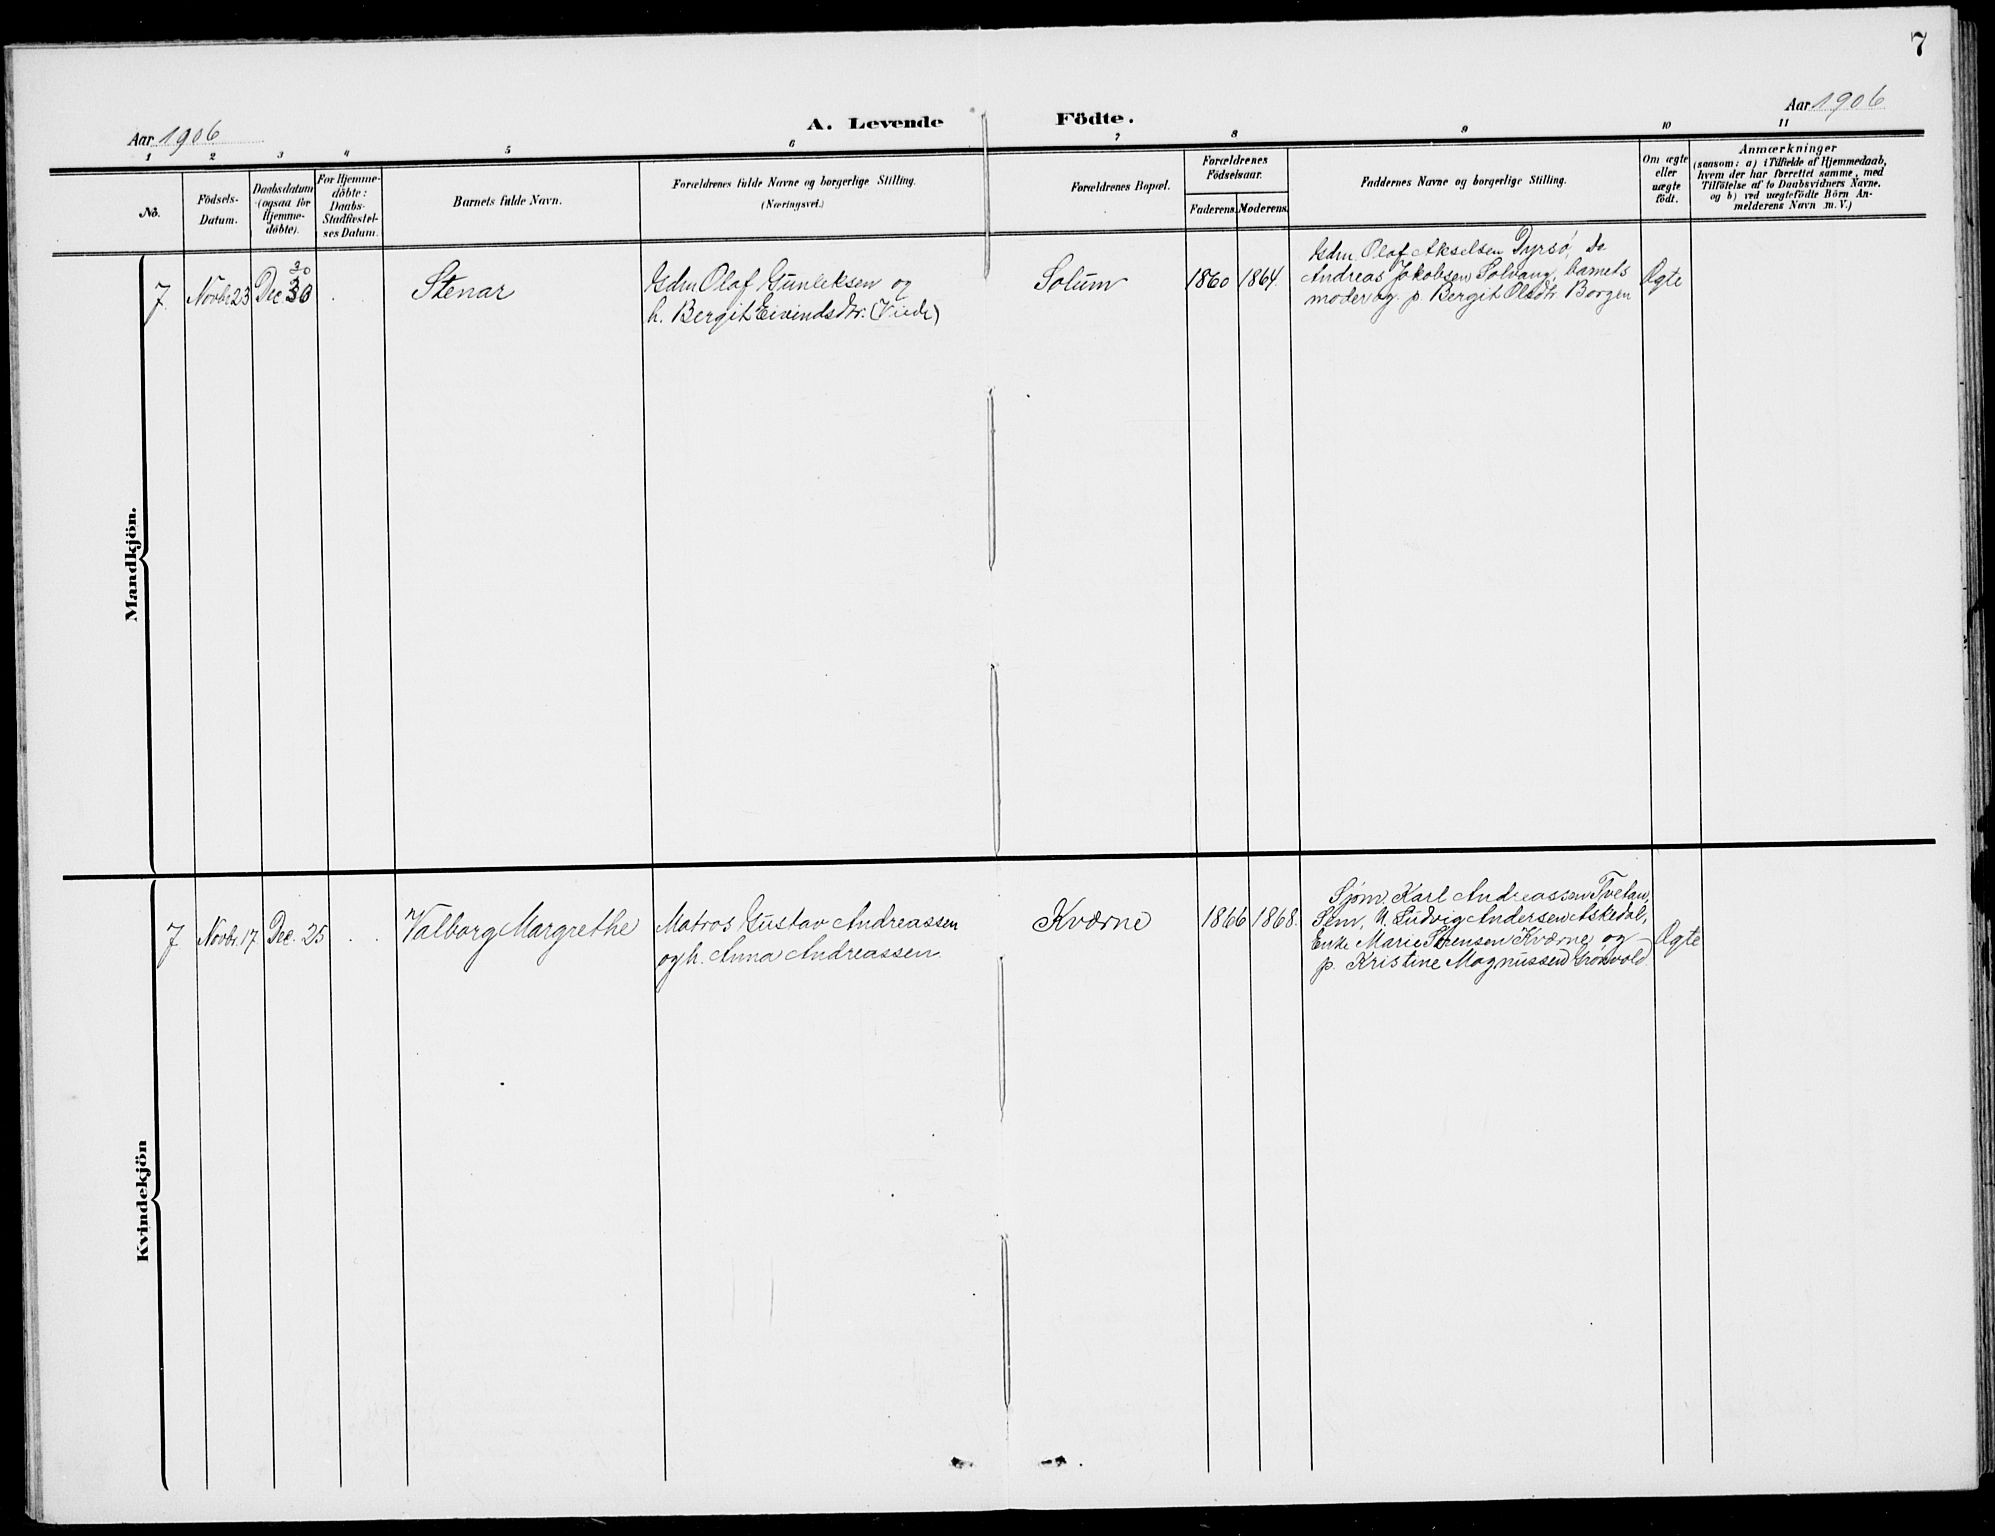 7
Aar 1906
A. Levende Födte.
Aar 1906
1 2 3 4 5 6 7 8 9 10 11
No.
Födsels-
Datum.
Daabsdatum
(ogsaa for
Hjemme-
döbte).
For Hjemme-
döbte:
Daabs-
Stadfæstel-
ses Datum.
Barnets fulde Navn.
Forældrenes fulde Navne og borgerlige Stilling.
(Næringsvei.)
Forældrenes Bopæl.
Forældrenes
Födselsaar.
Faderens. Moderens.
Faddernes Navne og borgerlige Stilling.
Om ægte
eller
uægte
födt.
Anmærkninger
(saasom: a) i Tilfælde af Hjemmedaab,
hvem der har forrettet samme, med
Tilföielse af to Daabsvidners Navne.
og b) ved uægtefödte Börn An-
melderens Navn m. V.)
Mandkjön.
7 Novbr. 23 Dec. 30
30
Stenar
Gdm Olaf Gunleksen og
h. Bergit Eivindsdtr.
Solum
1860 1864.
Gdm. Olaf Akselsen Dyrsö, Do
Andreas Jakobsen Solvang, barnets
moder og p. Bergit Olsdtr. Borgen
Ægte
Kvindekjön
7 Novbr. 17 Dec. 25
Valborg Margrethe
Matros Gustav Andreassen
og h. Anna Andreassen
Kværne
1866 1868.
Sjøm. Karl Andreassen Tvetan,
Sem, U. Ludvig Andersen Askedal,
Enke Marie Sørensen Kværne og
p. Kristine Magnussen Grønvold
Ægte